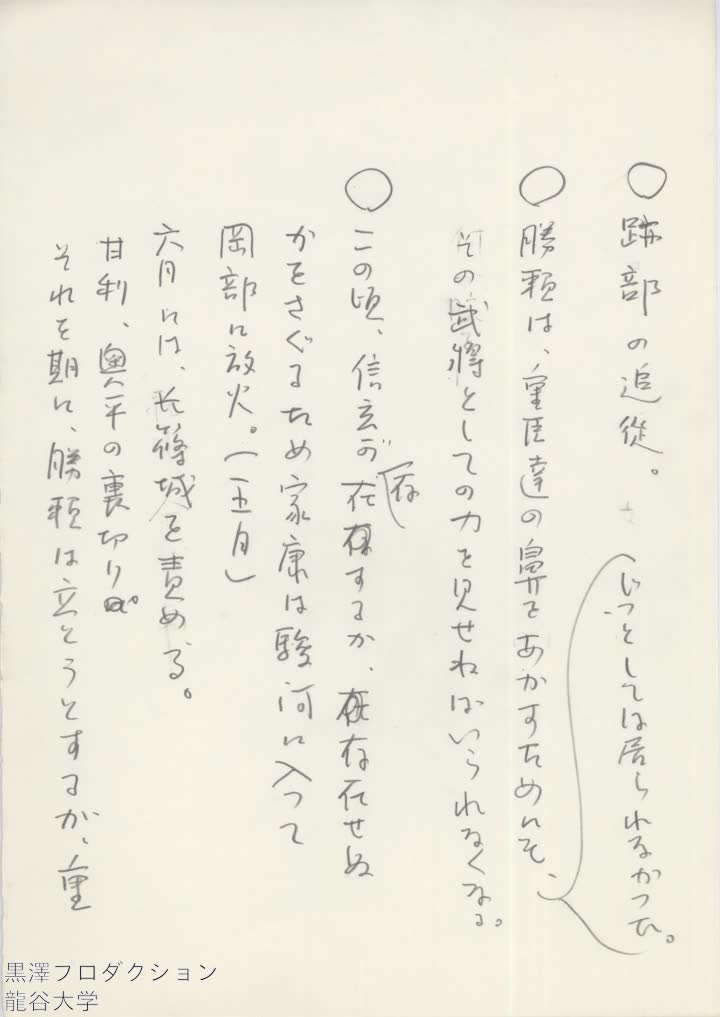 ○跡部の追従。
(じつとしては居られなかつた。
○勝頼は、重臣達の鼻をあかすためにも、
その武将としての力を見せねばいられなくなる。
○この頃、信玄が存在するか、存在せぬ
かをさぐるため家康は駿河に入つて
岡部に放火。(五月)
六月には、長篠城を責める。
甘利、奥平の裏切り。
それを期に、勝頼は立とうとするが、重
黒澤プロダクション
龍谷大学